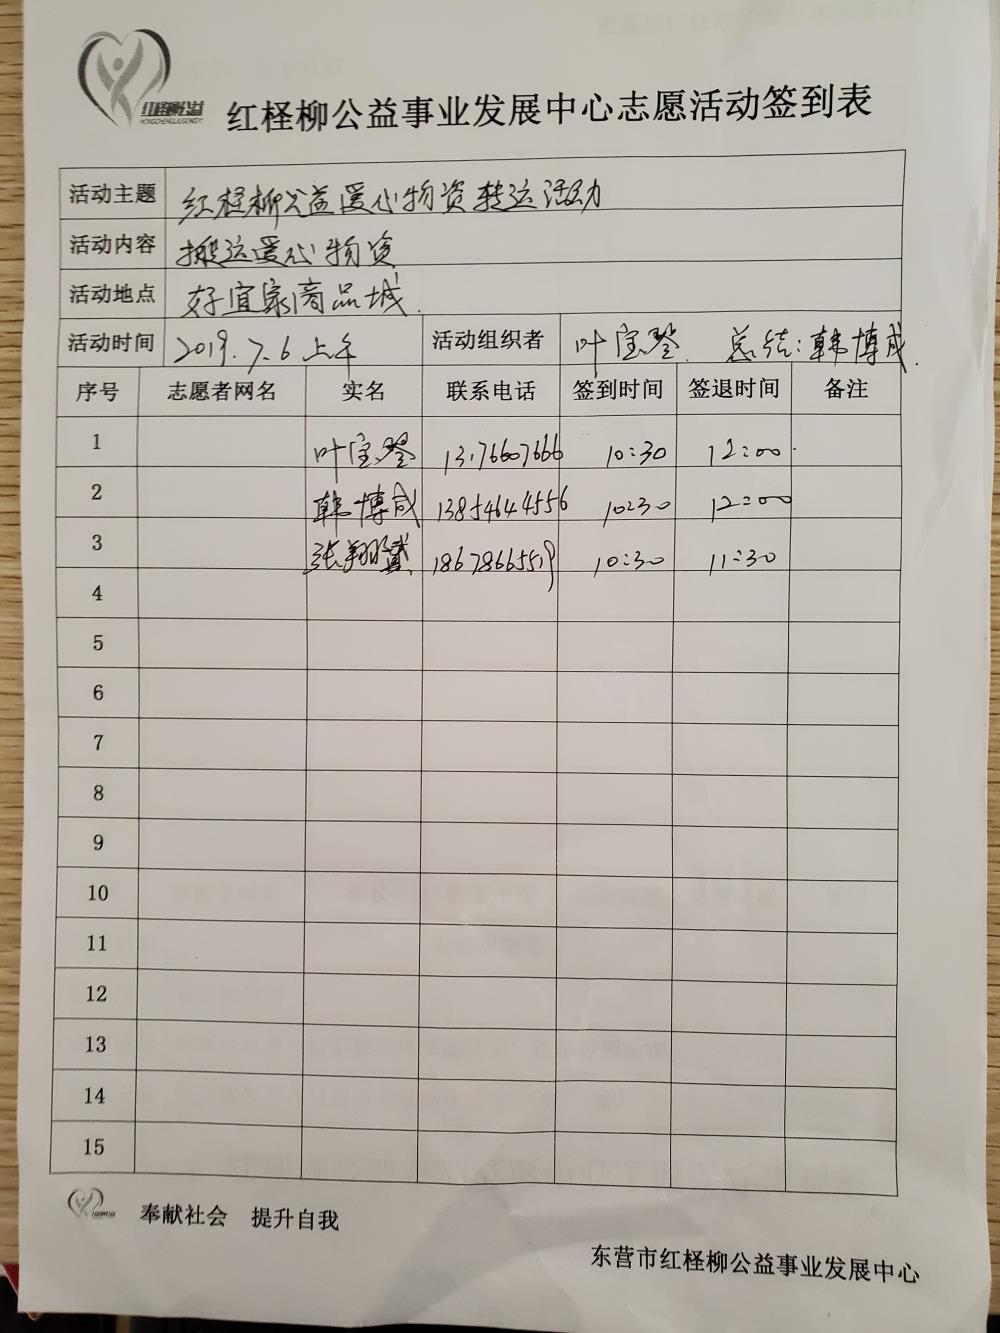 红柽柳公益
HONGCHENGLIUGONGYI
红柽柳公益事业发展中心志愿活动签到表
活动主题 红柽柳公益爱心物资转运活动
活动内容 搬运爱心物资
活动地点 好宜家商品城
活动时间 2019.7.6 上午 活动组织者 叶宝琴 总结:韩博成
序号 志愿者网名 实名 联系电话 签到时间 签退时间 备注
1 叶宝琴 13176607666 10:30 12:00
2 韩博成 13854644556 10:30 12:00
3 张翔 18678665519 10:30 11:30
4
5
6
7
8
9
10
11
12
13
14
15
奉献社会 提升自我
东营市红柽柳公益事业发展中心